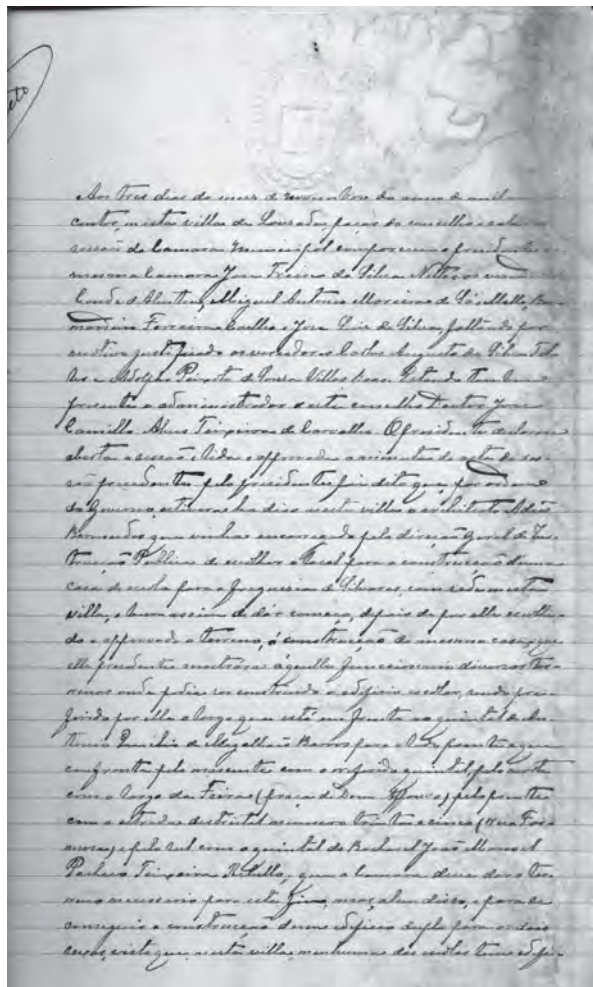 Aos tres dias do mez de novembro do anno de mil
centos, n'esta villa de Louzada, paços do concelho e sala
sessão da Camara Municipal compareceu o presidente
mesma Camara Jose Freire da Silva Netto, os
Conde d'Alentem, Miguel Antonio Moreira de Sá e Mello,
Ferreira Coelho e Jose Luiz da Silva, faltando por
motivo justificado os vereadores Carlos Augusto da Silva
e Adolpho Peixoto de Souza Villas Boas. Estando tambem
presente o administrador d'este concelho Doutor Jose
Camillo Alves Teixeira de Carvalho. O presidente declarou
aberta a sessão, lida e approvada a minuta da acta da ses-
são precedente, pelo presidente foi dito que, por ordem
do Governo, estivera ha dias n'esta villa o architecto Adães
Bermudes que vinha encarregado pela direcção Geral de Ins-
trucção Publica de escolher o local para a construcção d'uma
casa de escola para a freguezia de Silvares, com sede n'esta
villa, e bem assim de dar começo, depois de por elle escolhi-
do e approvado o terreno, á construcção da mesma casa; que
elle presidente mostrára áquelle funccionario diversos ter-
renos onde podia ser construido o edificio escolar, sendo pre-
ferido por elle o largo que está em frente ao quintal de An-
tonio de Magalhães Barros para o lado poente e que
confronta pelo nascente com o referido quintal, pelo norte
com o largo da Feira (praça de Dom Affonso) pelo poente
com a estrada districtal numero trinta e cinco (rua For-
mosa) e pelo sul com o quintal do Bacharel João Manoel
Pacheco Teixeira Rebello; que a Camara deve dar o ter-
reno necessario para este fim, mas, alem disso, e para se
conseguir a construcção d'um edificio duplo para os dois
sexos, visto que n'esta villa nenhuma das escolas tem edifi-